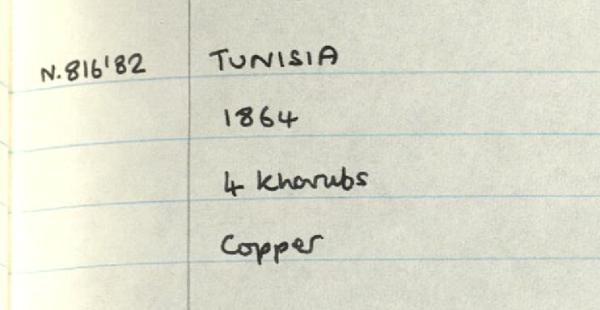 N.816'82 TUNISIA
1864
4 Kharubs
Copper